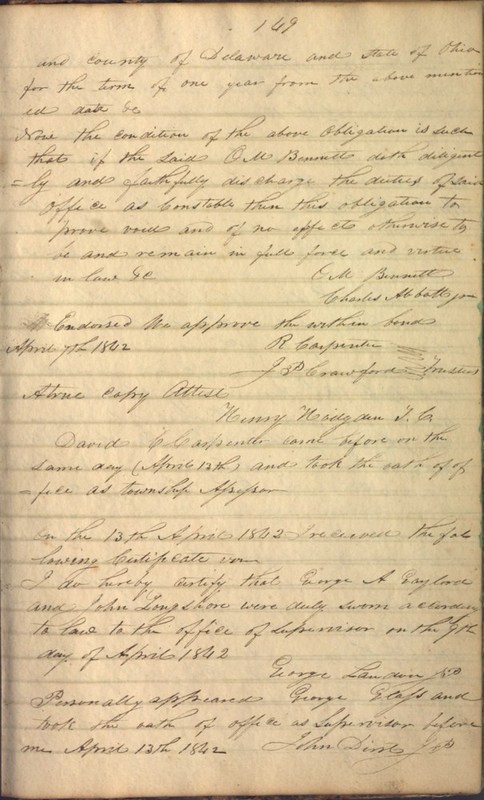 149
and county of Delaware and State of Ohio
for the term of one year from the above mention
ed date &c
Now the condition of the above Obligation is such
that if the said O M Bennett doth diligent
=ly and faithfully discharge the duties of said
Office as Constable then this obligation to
prove void and of no effect otherwise to
be and remain in full force and virtue
in law &c O M Bennett
Charles Abbott
Endorsed We approve the within bond
April 7th 1842 R Carpenter
J P Crawford Trustees
A true Copy Attest
Henry Hodgden T. C.
David C Carpenter came before on the
same day (April 13th) and took the oath of of
=fice as township Assessor
On the 13th April 1842 I received the fol
lowing Certificate
I do hereby certify that George A Gaylord
and John Longshore were duly sworn according
to law to the office of Supervisor on the 9th
day of April 1842
George Landon JP
Personally appeared George Glass and
took the oath of office as Supervisor before
me April 13th 1842 John JP